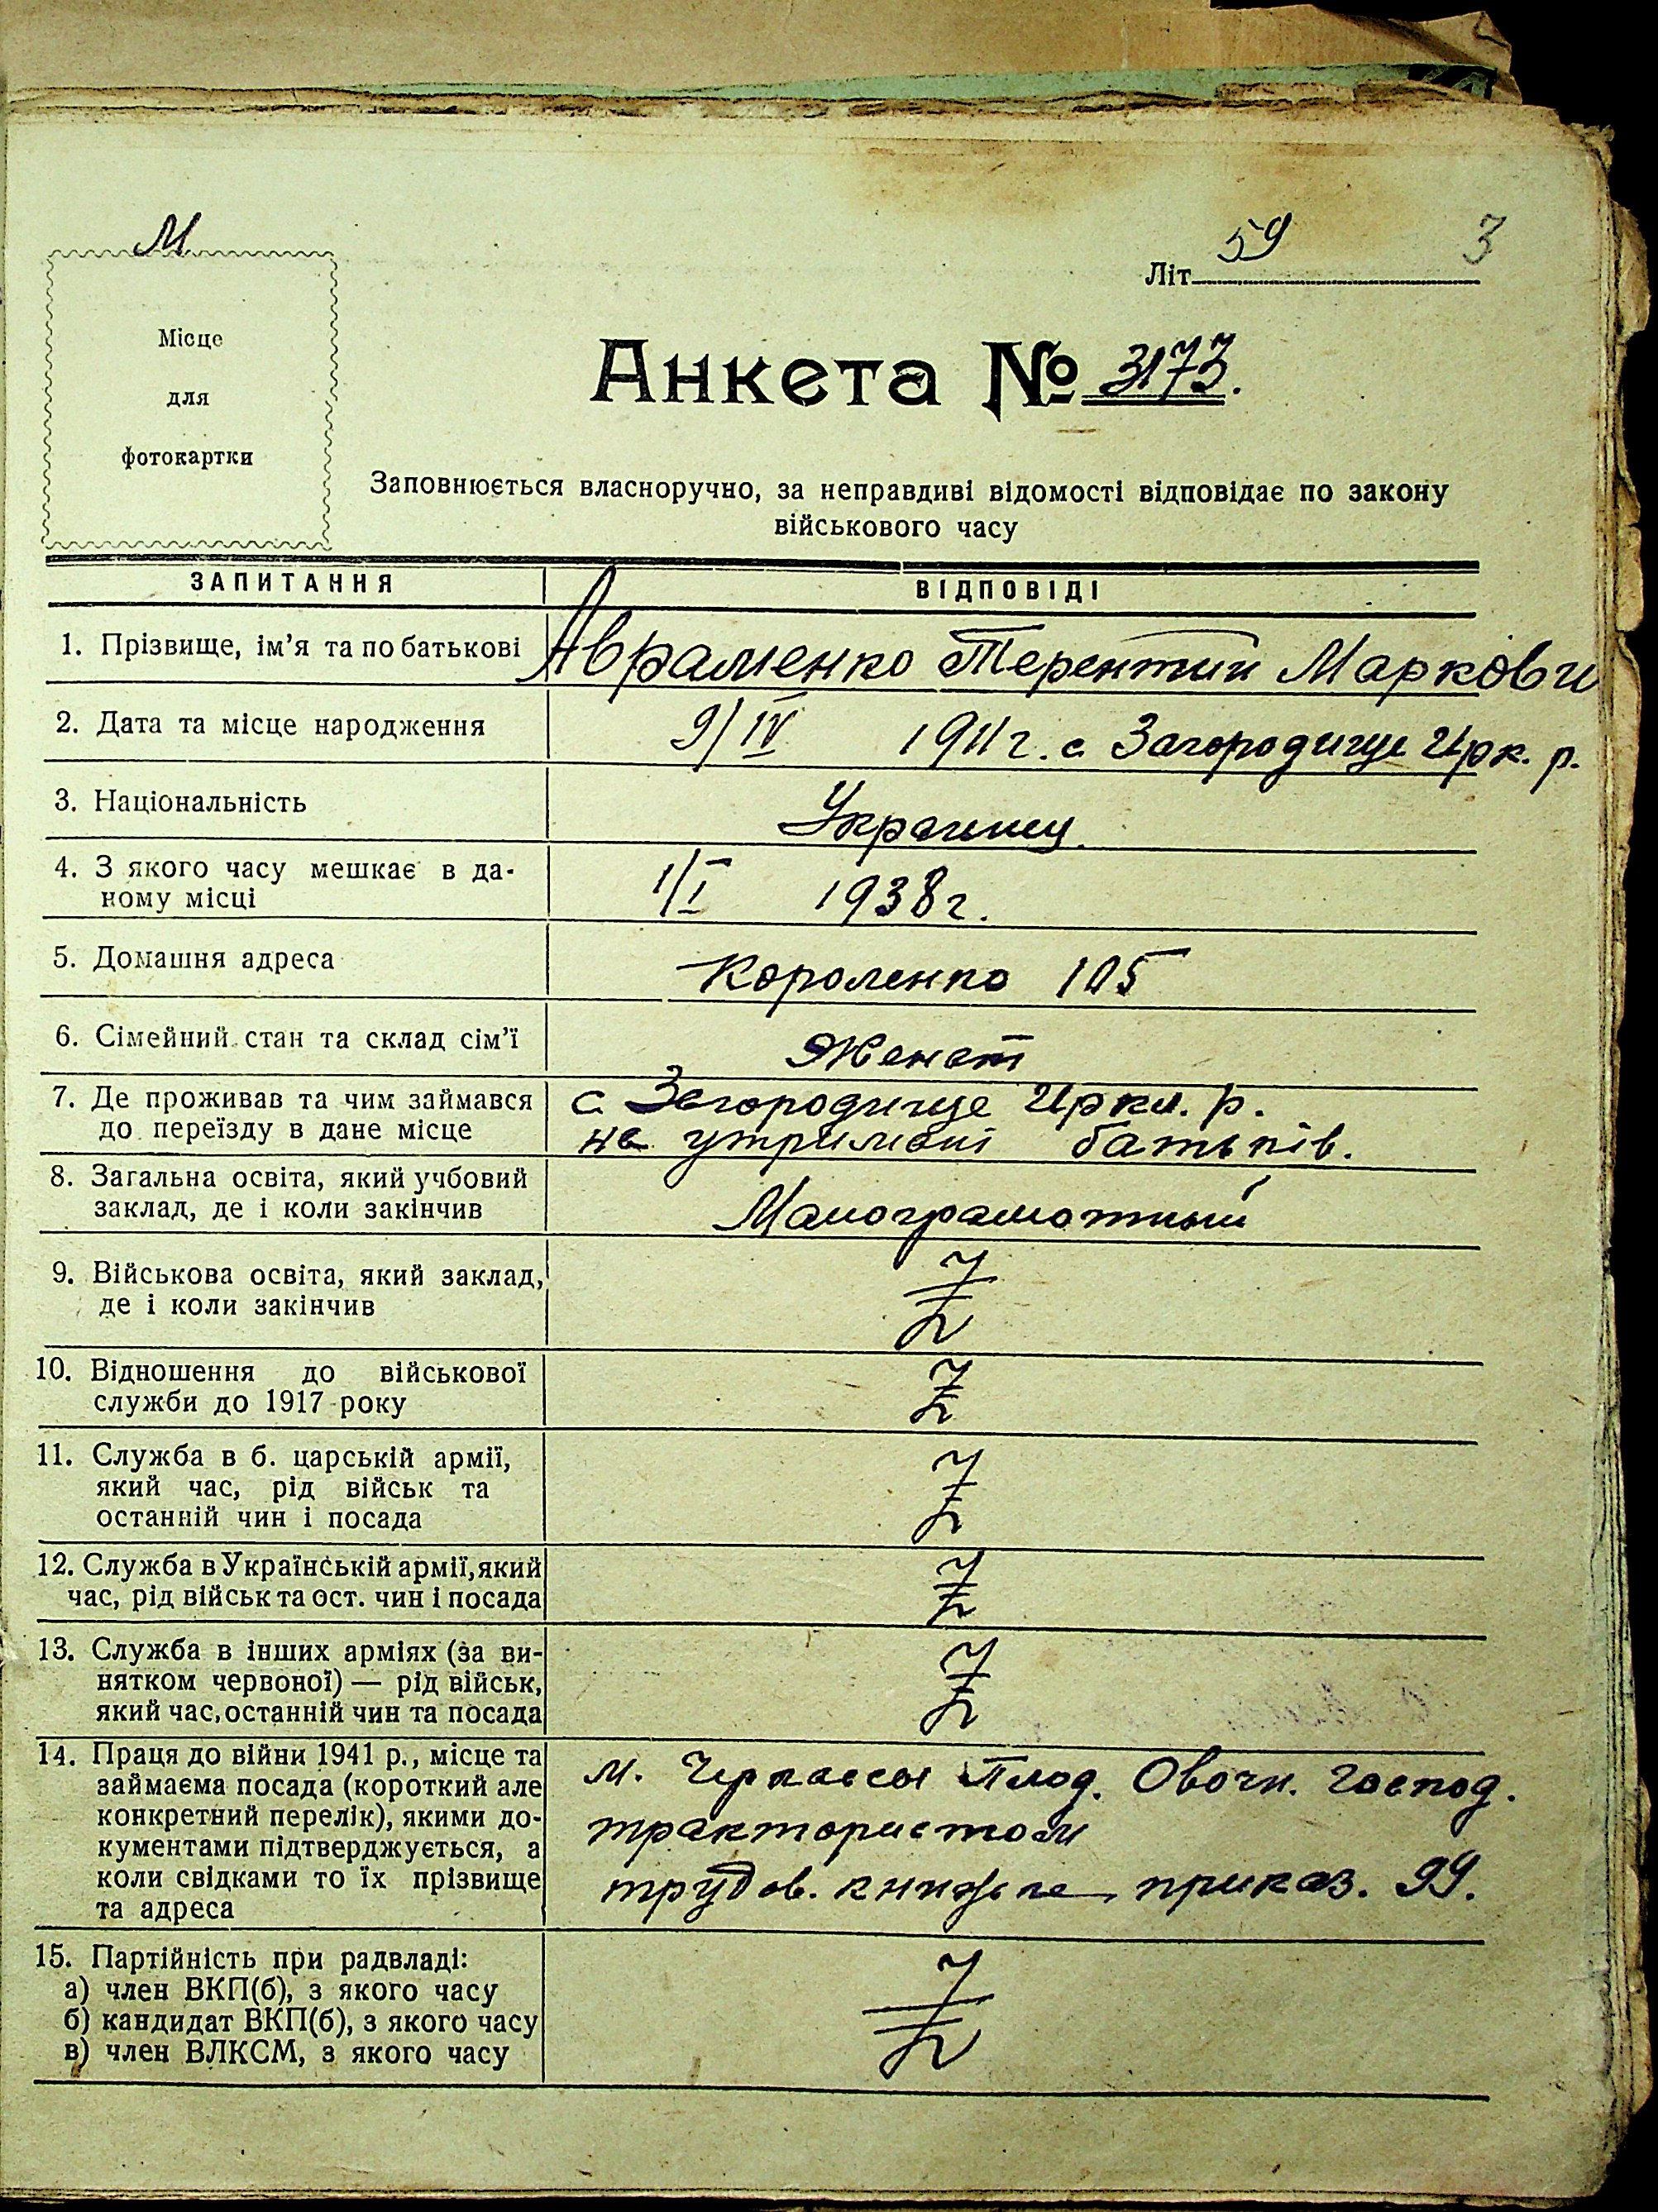 М
59 3
Літ
Місце
для
фотокартки
Анкета № 3173.
Заповнюється власноручно, за неправдиві відомості відповідає по закону
військового часу
ЗАПИТАННЯ ВІДПОВІДІ
1. Прізвище, ім’я та по батькові Авраменко Терентий Маркови
2. Дата та місце народження 9/IV 1911 г. с Загородище Ирк. р.
3. Національність Украинец.
4. З якого часу мешкає в да-
ному місці 1/I 1938 г.
5. Домашня адреса Короленко 105
6. Сімейний стан та склад сім’ї Женат
7. Де проживав та чим займався с Загородище Иркл. р.
до переїзду в дане місце на утримані батьків.
8. Загальна освіта, який учбовий
заклад, де і коли закінчив Малограмотный
9. Військова освіта, який заклад,
де і коли закінчив
10. Відношення до військової
служби до 1917 року
11. Служба в б. царській армії,
який час, рід військ та
останній чин і посада
12. Служба в Українській армії, який
час, рід військ та ост. чин і посада
13. Служба в інших арміях (за ви-
нятком червоної) — рід військ,
який час, останній чин та посада
14. Праця до війни 1941 р., місце та м. Черкассы Плод. Овочн. Господ.
займаєма посада (короткий але
конкретний перелік), якими до- трактористом
кументами підтверджується, а
коли свідками то їх прізвище трудов. книжке, приказ. 99.
та адреса
15. Партійність при радвладі:
а) член ВКП(б), з якого часу
б) кандидат ВКП(б), з якого часу
в) член ВЛКСМ, з якого часу